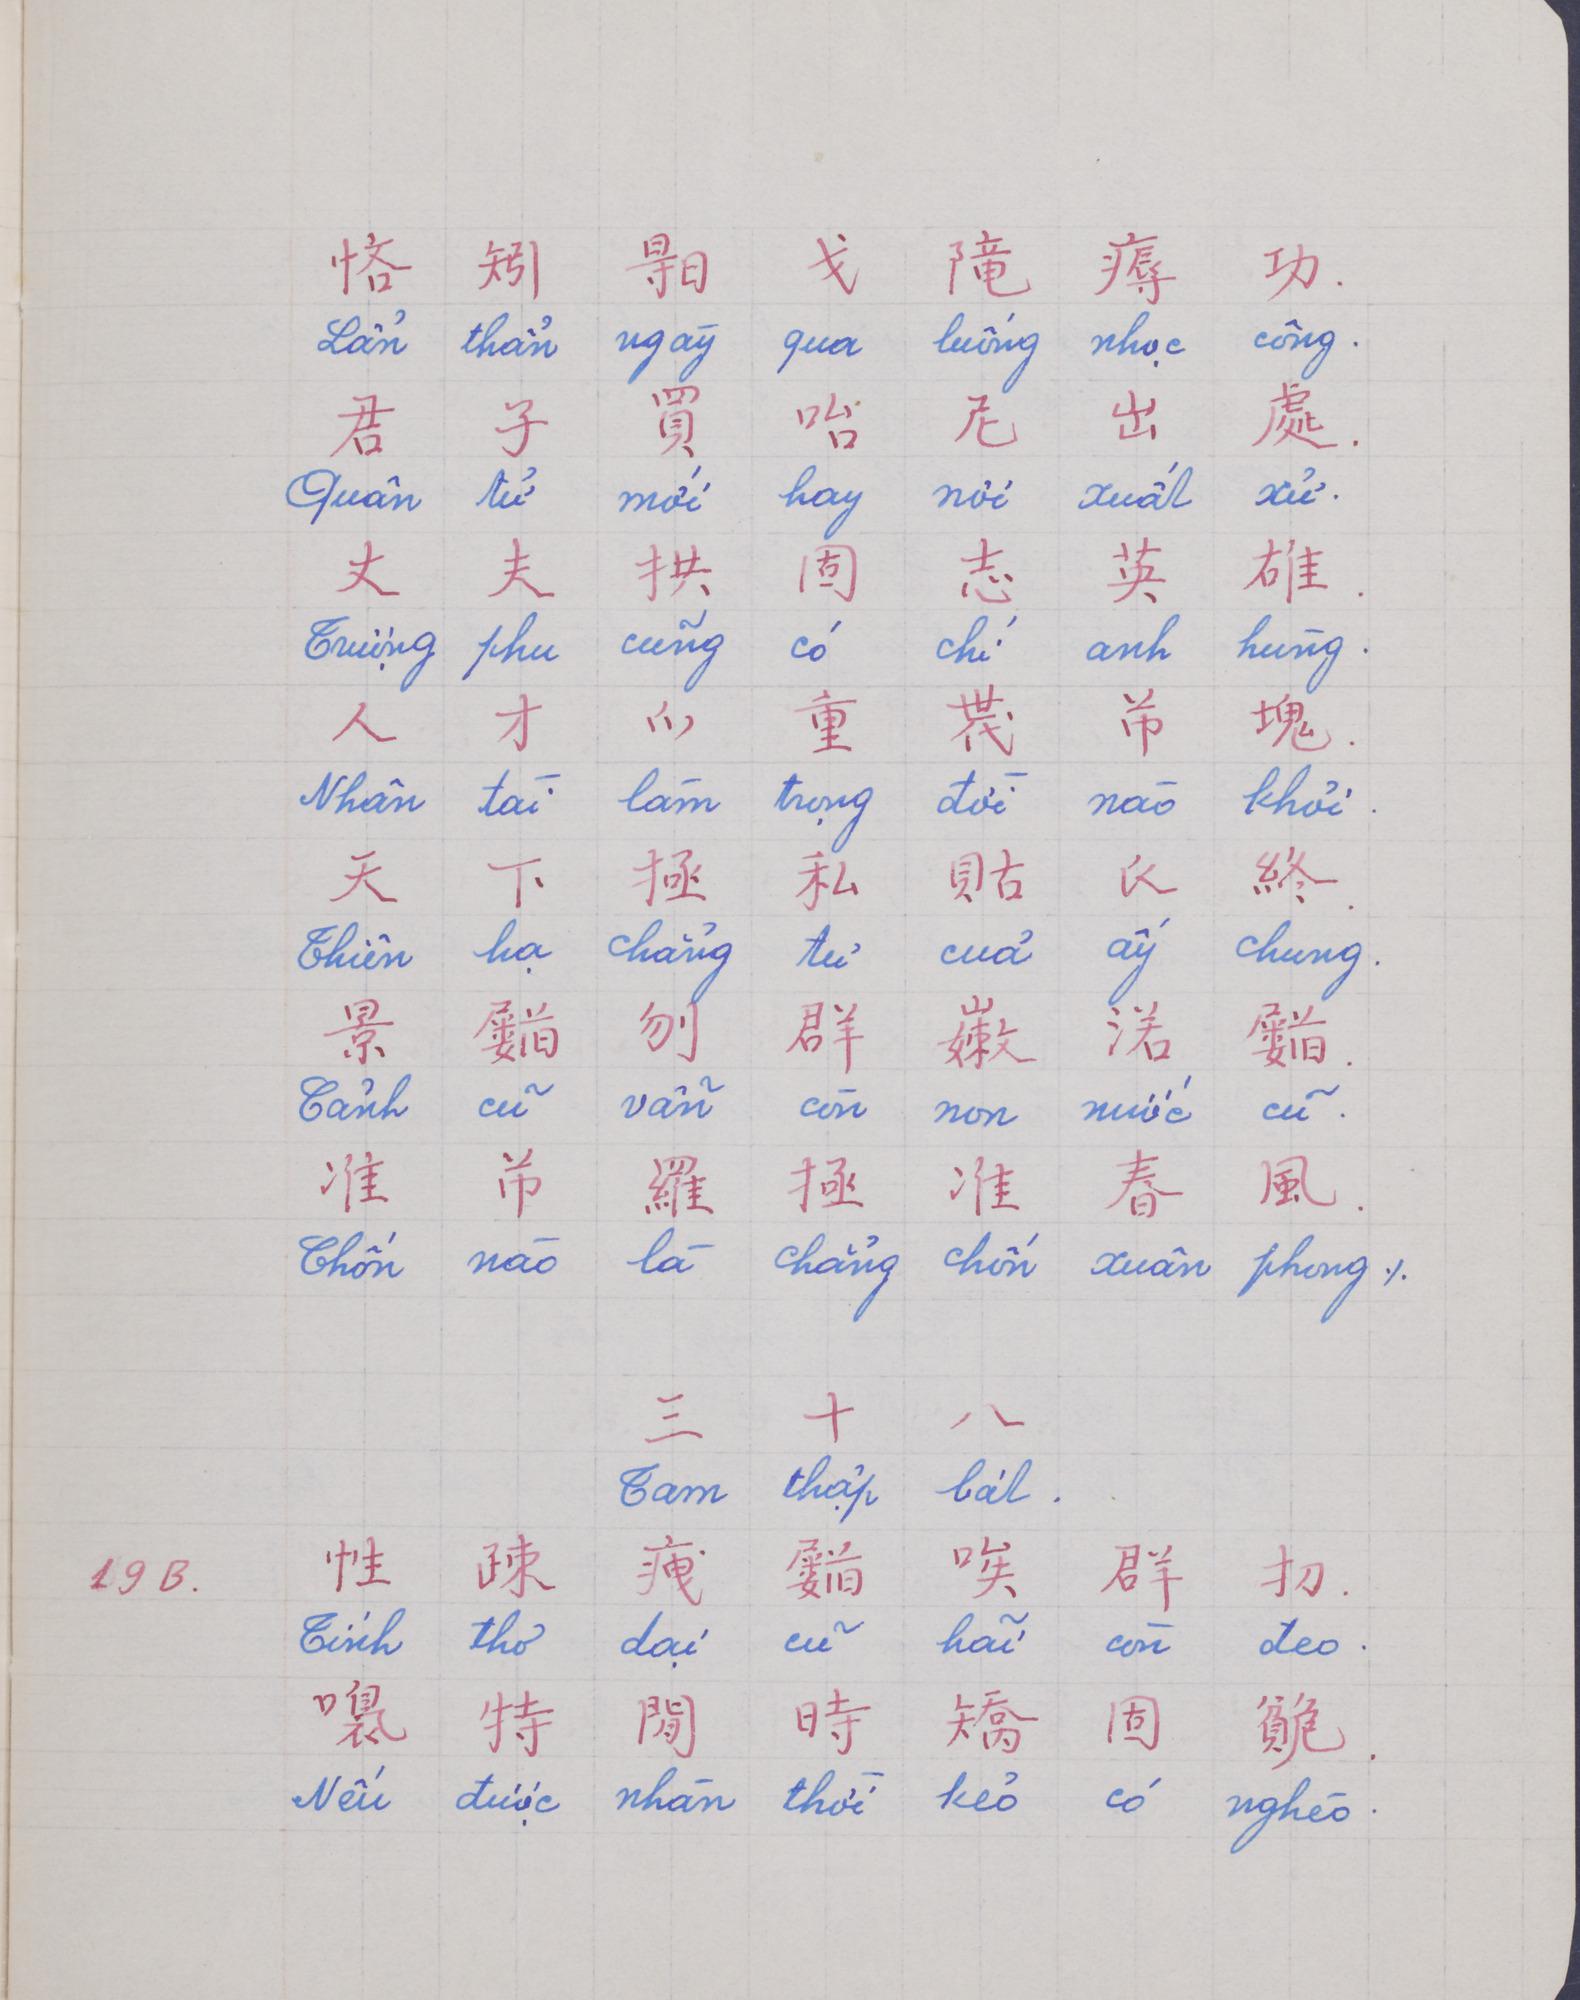 恪 矧 𣈜 戈 隴 𤸒 功.
Lẩn thẩn ngày qua luống nhọc công.
君 子 買 咍 尼 出 處.
Quân tử mới hay nơi xuất xử.
丈 夫 拱 固 志 英 雄.
Trượng phu cũng có chí anh hùng.
人 才 𫜵 重 𠁀 芇 塊.
Nhân tài làm trọng đời nào khỏi.
天 下 拯 私 貼 氏 終.
Thiên hạ chẳng tư của ấy chung.
景 𡳵 刎 群 嫩 渃 𡳵.
Cảnh cũ vẫn còn non nước cũ.
准 芇 羅 拯 准 春 風.
Chốn nào là chẳng chốn xuân phong ./.
三 十 八
Tam thập bát.
19B. 性 疎 𤵺 𡳵 唉 群 扨.
Tính thơ dại cũ hãi còn đeo.
特 閒 時 矯 固 𧵆.
Nếu được nhàn thời kẻo có nghèo.